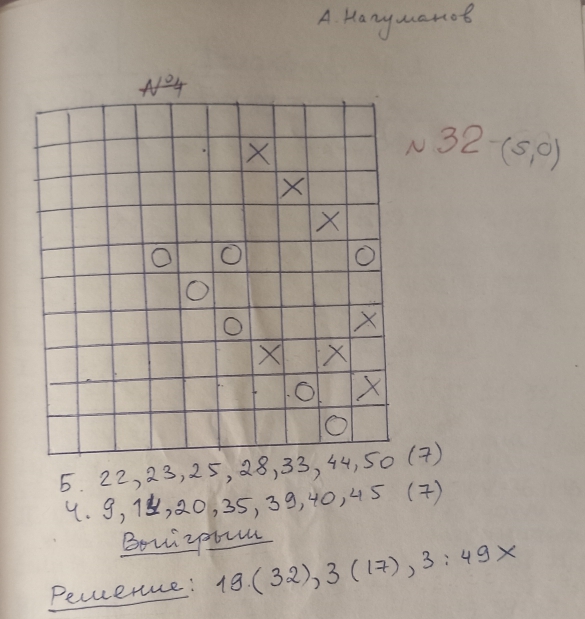 А. Нагуманов
№4
№32 - (5,0)
Б. 22, 23, 25, 28, 33, 44, 50 (7)
Ч. 9, 14, 20, 35, 39, 40, 45 (7)
Выигрыш
Решение: 19.(32), 3 (17), 3 : 49 X